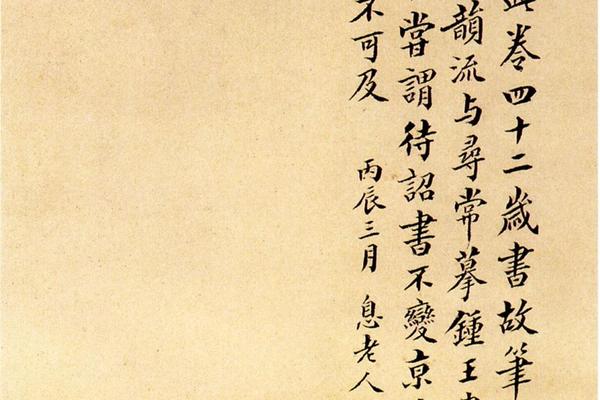 此卷四十二歲書故筆
韻流与尋常摹鍾王
嘗謂待詔書不變京
不可及 丙辰三月 息老人